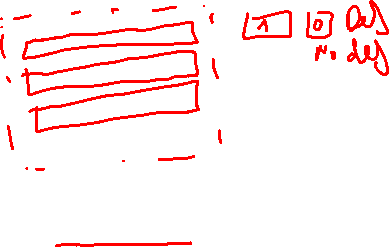 1 0 Def
N. def